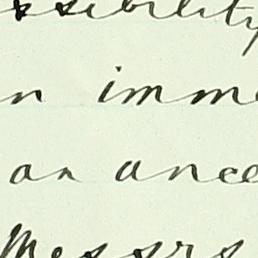 ssibility
n imm
on ance
Messrs